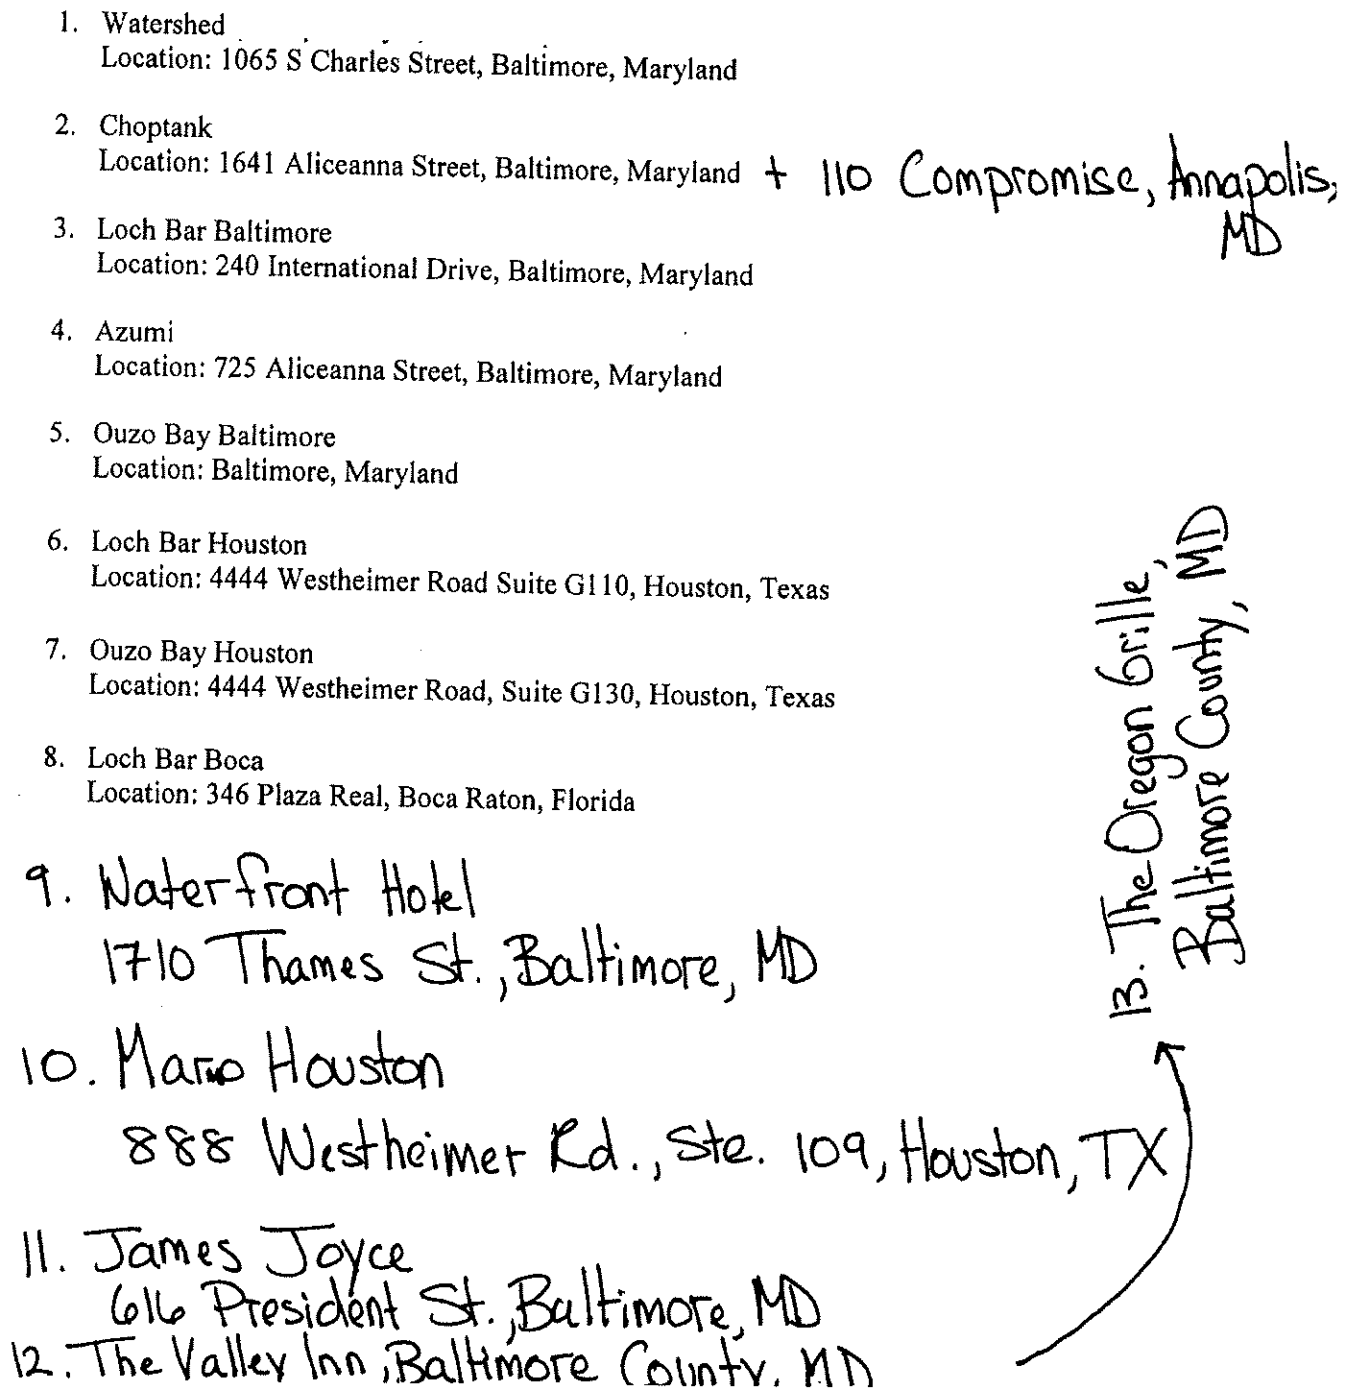 1. Watershed
Location: 1065 S Charles Street, Baltimore, Maryland
2. Choptank
Location: 1641 Aliceanna Street, Baltimore, Maryland + 110 Compromise, Annapolis,
MD
3. Loch Bar Baltimore
Location: 240 International Drive, Baltimore, Maryland
4. Azumi
Location: 725 Aliceanna Street, Baltimore, Maryland
5. Ouzo Bay Baltimore
Location: Baltimore, Maryland
6. Loch Bar Houston
Location: 4444 Westheimer Road Suite G110, Houston, Texas
7. Ouzo Bay Houston
Location: 4444 Westheimer Road, Suite G130, Houston, Texas
8. Loch Bar Boca
Location: 346 Plaza Real, Boca Raton, Florida
9. Waterfront Hotel
1710 Thames St., Baltimore, MD
10. Marmo Houston
888 Westheimer Rd., Ste. 109, Houston, TX
11. James Joyce
616 President St., Baltimore, MD
12. The Valley Inn, Baltimore County, MD
13. The Oregon Grille,
Baltimore County, MD